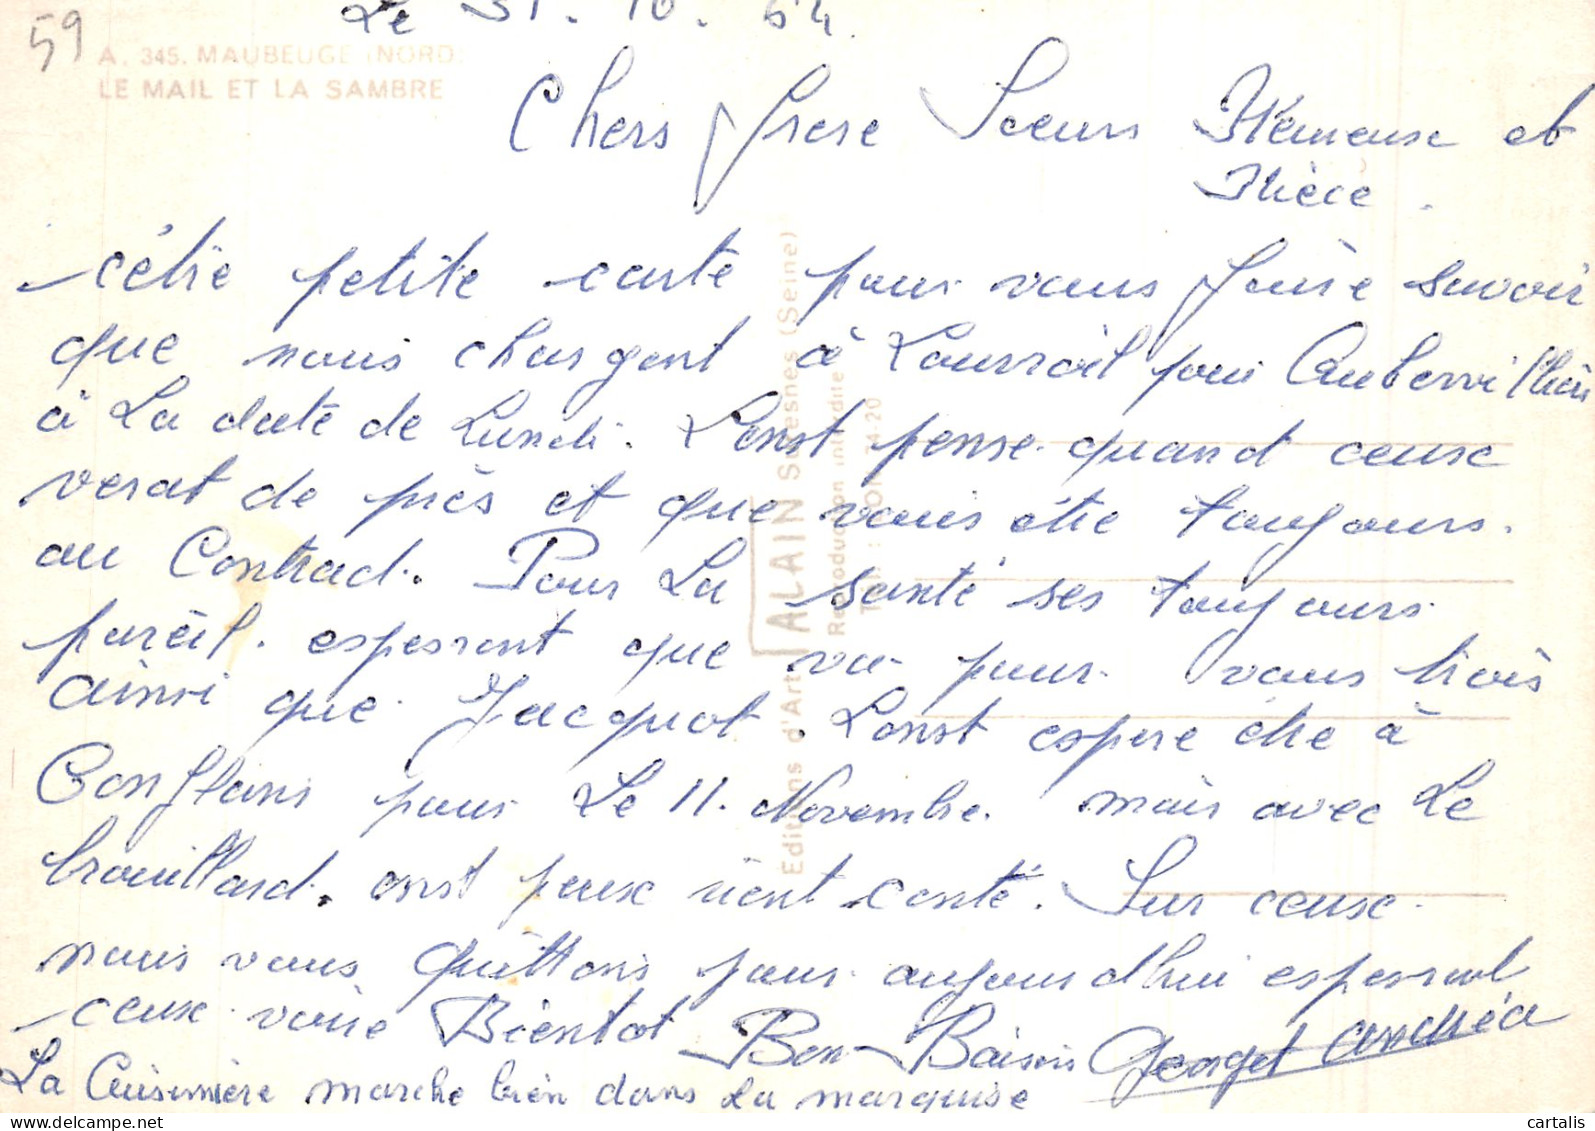 Le 31. 10. 64.
59
A. 345. MAUBEUGE (NORD)
LE MAIL ET LA SAMBRE
Chers frere Soeurs Neuveuse et
Nièce.
cétte petite carte pour vous faire savoir
que nous chargont à pour Aubervilliers
à La date de Lundi. L'onst pense quand ceuse
verat de près et que vous étre toujours.
au Contrad. Pour La santé ses toujours
pareil. esperont que va pour vous trois
ainsi que Jacquot. L'onst espere étre à
Conflans pour Le 11. Novembre. mais avec Le
brouillard. onst peuse rient conté. Sur ceuse
nous vous quittons pour aujourdhui esperont
ceuse voire Bientot Bon Baisers Georget Andréa
La Cuisinière marche bien dans La marquise
Editions d'Art ALAIN Suresnes (Seine)
Reproduction interdite
cartalis
cartalis.com